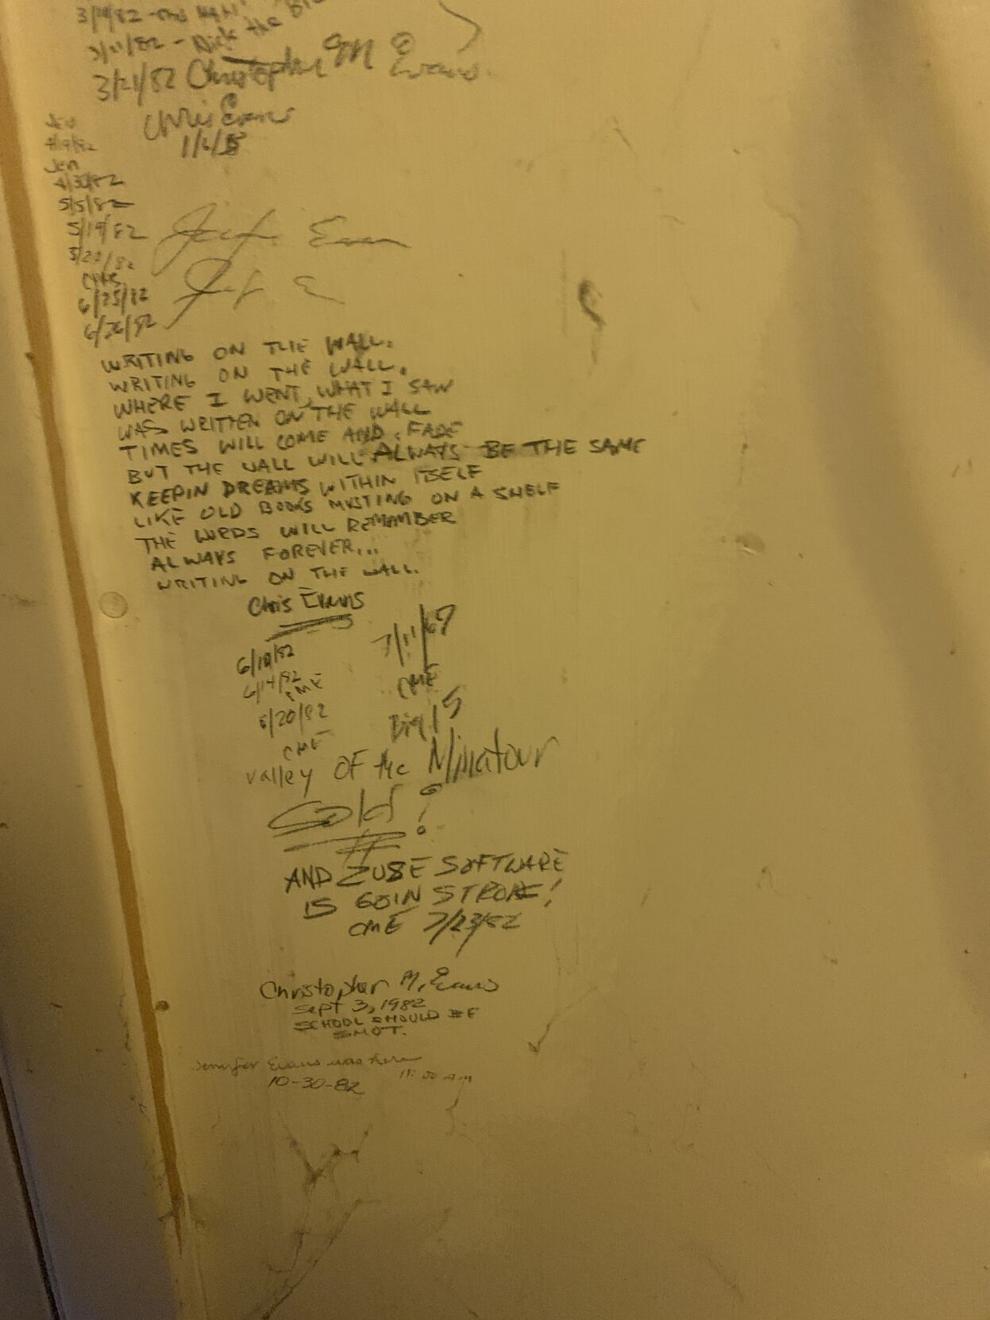 3/21/82 Christopher M Evans
Chris Evans
1/6/
Jen
4/19/82
Jen
4/30/82
5/5/82
5/19/82
5/22/82
6/25/82
6/26/82
WRITING ON THE WALL.
WRITING ON THE WALL.
WHERE I WENT, WHAT I SAW
WAS WRITTEN ON THE WALL
TIMES WILL COME AND FADE
BUT THE WALL WILL ALWAYS BE THE SAME
KEEPIN DREAMS WITHIN ITSELF
LIKE OLD BOOKS MUSTING ON A SHELF
THE WORDS WILL REMEMBER
ALWAYS FOREVER...
WRITING ON THE WALL.
Chris Evans
6/10/82
6/14/82
CME
6/20/82
CME
7/11/
CME
valley OF the Minatour
Sold!
AND ZUSE SOFTWARE
IS GOIN STRONE!
CME 7/23/82
Christopher M. Evans
Sept 3, 1982
SCHOOL SHOULD BE
SHOT.
Jennifer Evans was here
10-30-82